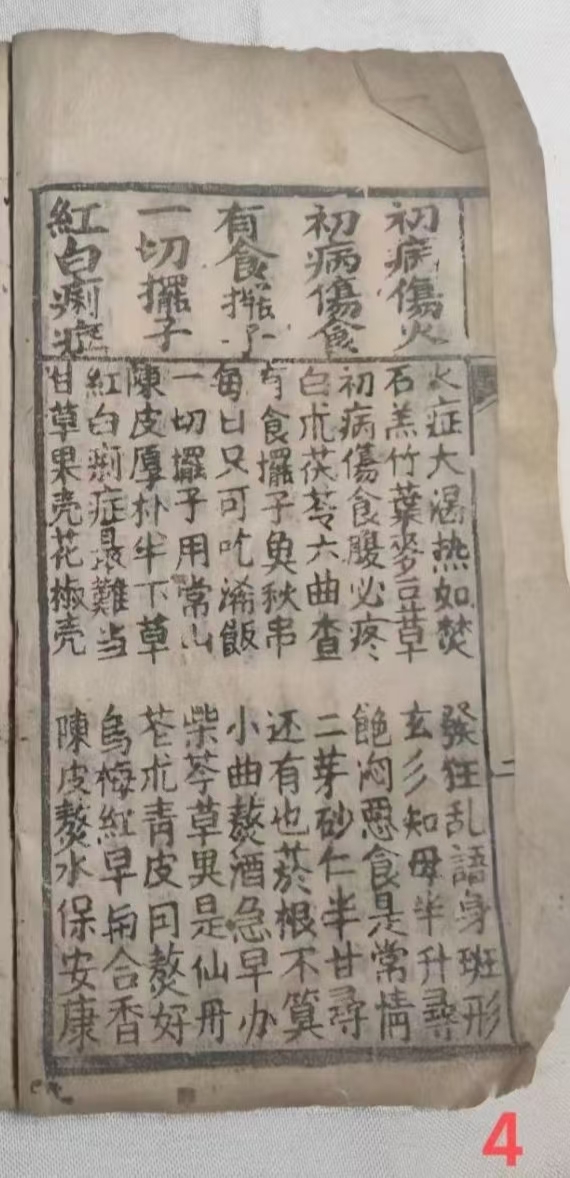 初病傷火
初病傷食
有食擺子
一切擺子
紅白痢症
火症大渴热如焚
發狂乱語身斑形
石羔竹葉麥豆草
玄彡知母半升尋
初病傷食腹必疼
飽悶惡食是常情
白朮茯苓六曲查
二芽砂仁半甘尋
有食擺子魚秋串
还有也菸根不算
每日只可吃浠飯
小曲熬酒急早办
一切擺子用常山
柴芩草果是仙冊
陳皮厚朴半下草
芒朮青皮同熬好
紅白痢症最難当
烏梅紅早南合香
甘草果壳花椒壳
陳皮熬水保安康
二
4